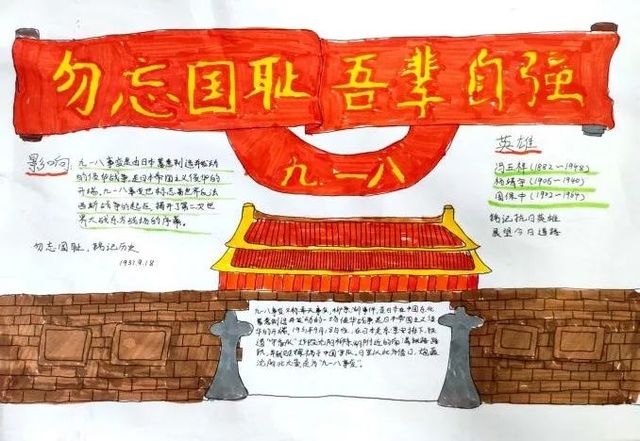 勿忘国耻 吾辈自强
九·一八
影响:
九一八事变是由日本蓄意制造并发动
的侵华战争,是日本帝国主义侵华的
开端。九一八事变也标志着世界反法
西斯战争的起点,揭开了第二次世
界大战东方战场的序幕。
勿忘国耻、铭记历史
1931.9.18
英雄
冯玉祥(1882-1948)
杨靖宇(1905-1940)
周保中(1902-1964)
铭记抗日英雄
展望今日道路
九一八事变又称奉天事变、柳条湖事件,是日本在中国东北
蓄意制造并发动的一场侵华战争,是日本帝国主义侵
华的开端。1931年9月18日夜,在日本关东军安排下,铁
道"守备队"炸毁沈阳柳条湖附近的南满铁路路
轨,并嫁祸于中国军队。日军以此为借口,炮轰
沈阳北大营,是为"九一八事变"。